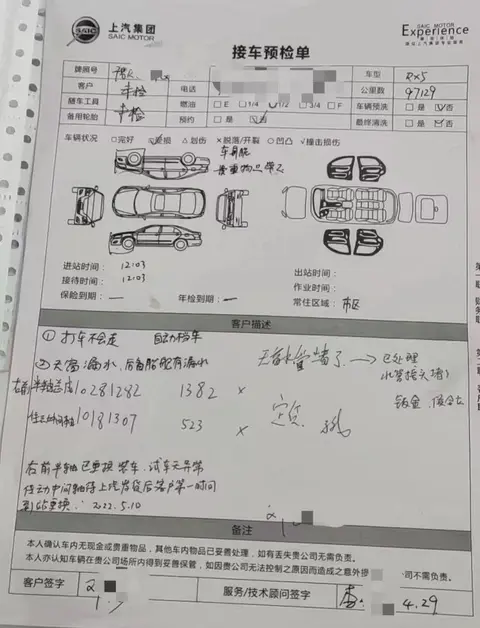 上汽集团
SAIC MOTOR
SAIC MOTOR
Experience
接车预检单
牌照号 豫
车型 RX5
客户 未检
电话
公里数 97129
随车工具 未检
燃油 □E □1/4 □1/2 □3/4 □F
车辆预洗 □是 □否
备用轮胎
预约 □是 □否
最终清洗 □是 □否
车辆状况 ○完好 磨损 △划伤 ×脱落/开裂 ○凹凸 √撞击损伤
贵重物品带飞
进站时间: 12:03
出站时间:
接待时间: 12:03
作业时间:
保险到期: —
年检到期: —
常住区域: 市区
客户描述
① 打车不会走 自动挡车
② 天窗漏水,后备胎
天窗水管堵了 → 已处理
10281282 1382 ×
10181307 523 ×
定货
右前半轴已更换装车,试车无异常
待上汽发货后客户第一时间
到站更换. 2022.5.10
备注
本人确认车内无现金或贵重物品,其他车内物品已妥善处理,如有丢失贵公司无需负责。
本人亦认知车辆在贵公司场所内得到妥善保管,如因贵公司无法控制之原因而造成之意外
司不需负责。
客户签字
服务/技术顾问签字
4.29